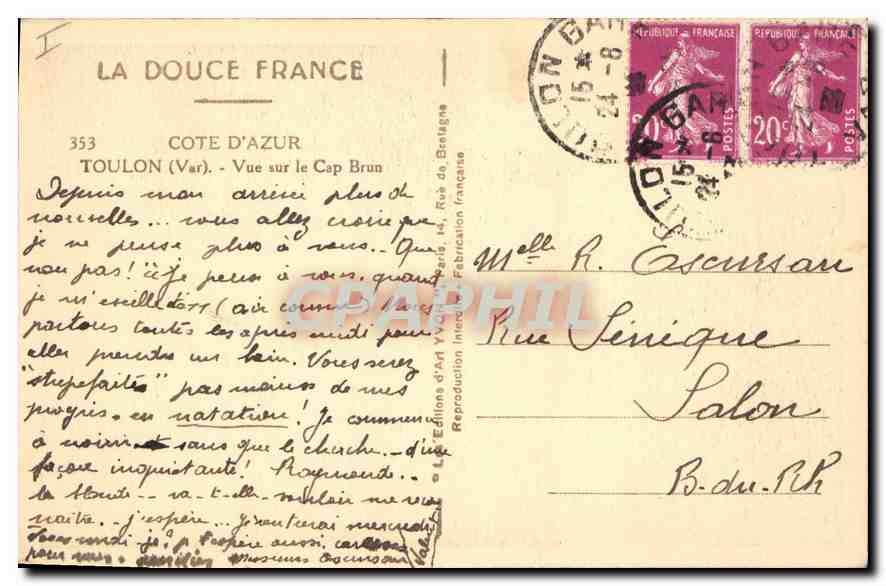 I
LA DOUCE FRANCE
353 COTE D'AZUR
TOULON (Var). - Vue sur le Cap Brun
Depuis mon arrivée plus de
nouvelles... vous allez croire que
je ne pense plus à vous.. Que
non pas! "Je pense à vous, quand
je m'éveille" (air connu) Nous
partons toutes les après midi pour
aller prendre un bain. Vous serez
"stupefaites" pas moins de mes
progrès. en natation! Je commence
à noircir sans que le cherche.. d'une
façon inquiétante! Raymonde..
la blonde.. va-t-elle vouloir me recon
naître.. j'espère... Je rentrerai mercredi
aussi,
pour vous. Messieurs Escursan
Valentin
Les Editions d'Art YVON, Paris, 14, Rue de Bretagne
Reproduction Interdite. Fabrication française
TOULON GARE
15 *
24 -8
TOULON GARE
15 *
24 -8
REPUBLIQUE FRANÇAISE
20c
POSTES
REPUBLIQUE FRANÇAISE
20c
POSTES
VAR
Melle R. Escursan
Rue Sénèque
Salon
B-du-Rh
CPAPHIL